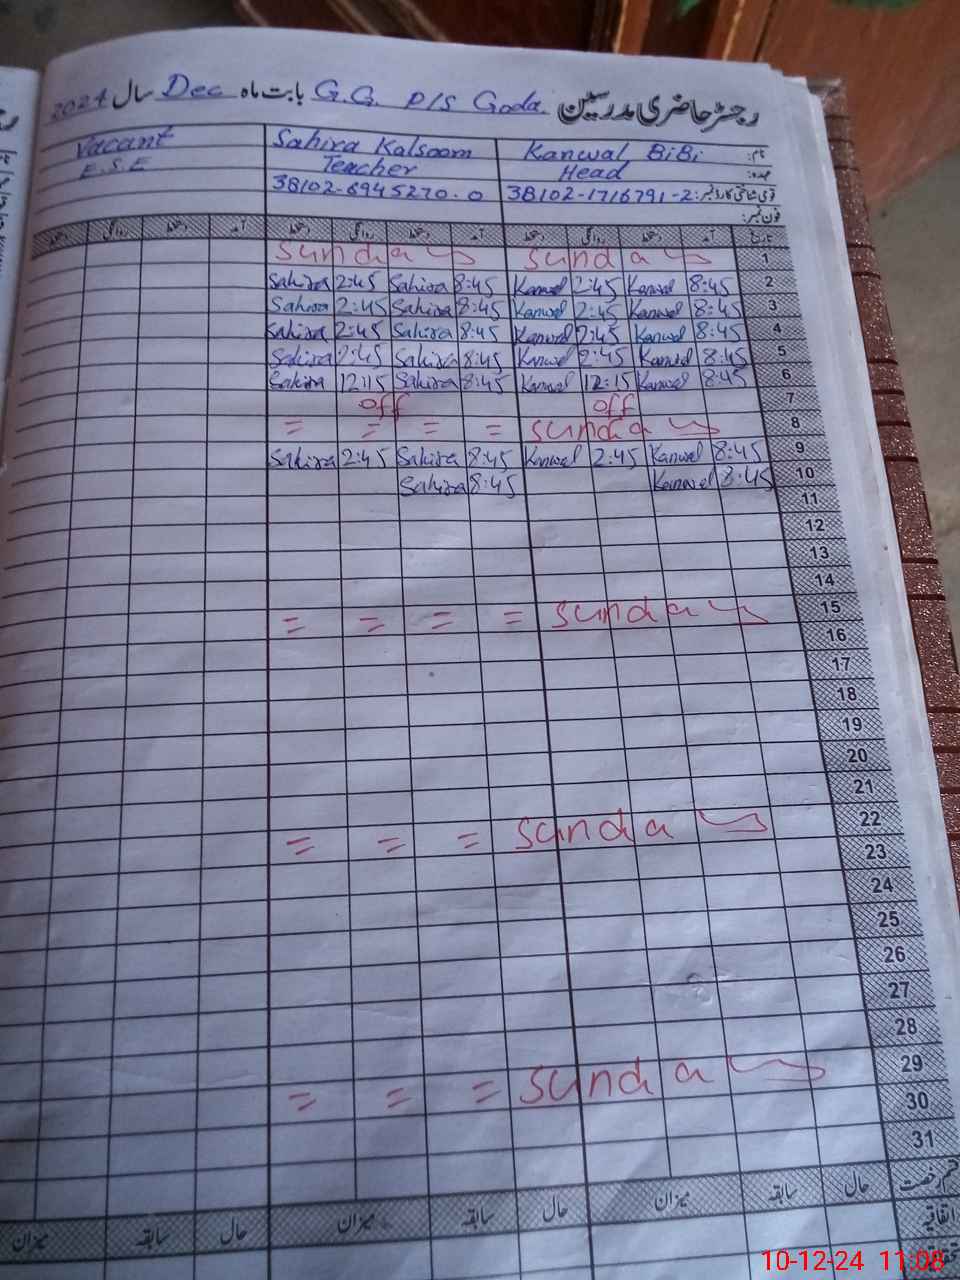 رجسٹر حاضری مدرسین G.G. P/S Goda. بابت ماہ Dec سال 2024
نام: Kanwal BiBi Sahira Kalsoom Vacant
عہدہ: Head Teacher E.S.E
قومی شناختی کارڈ نمبر: 38102-1716791-2 38102-6945270-0
فون نمبر:
تاریخ آمد دستخط روانگی دستخط آمد دستخط روانگی دستخط آمد دستخط روانگی دستخط
1 Sunday Sunday
2 8:45 Kanwal 2:45 Kanwal 8:45 Sahira 2:45 Sahira
3 8:45 Kanwal 2:45 Kanwal 8:45 Sahira 2:45 Sahira
4 8:45 Kanwal 2:45 Kanwal 8:45 Sahira 2:45 Sahira
5 8:45 Kanwal 2:45 Kanwal 8:45 Sahira 2:45 Sahira
6 8:45 Kanwal 12:15 Kanwal 8:45 Sahira 12:15 Sahira
7 off off
8 Sunday = = = =
9 8:45 Kanwal 2:45 Kanwal 8:45 Sahira 2:45 Sahira
10 8:45 Kanwal 8:45 Sahira
11
12
13
14
15 Sunday = = = =
16
17
18
19
20
21
22 Sunday = = =
23
24
25
26
27
28
29 Sunday = = =
30
31
قسم رخصت حال سابقہ میزان حال سابقہ میزان حال سابقہ میزان
اتفاقیہ
10-12-24 11:08